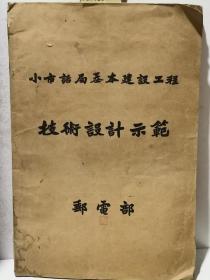 小市話局基本建設工程
技術設計示範
郵電部